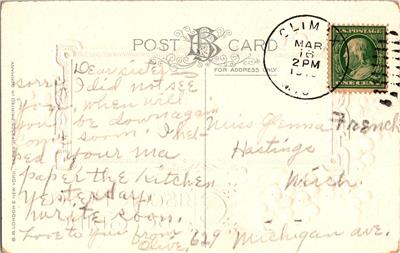 POST B CARD
FOR ADDRESS ONLY
CLIM
MAR
16
2 PM
U.S. POSTAGE
ONE CENT
Dear sister
I did not see
you, when will
you be down again
soon. I hel-
ped your ma
paper the kitchen
Yesterday.
write soon.
Love to you from
Olive.
Miss Glenna French
Hastings
Mich.
629 Michigan ave.